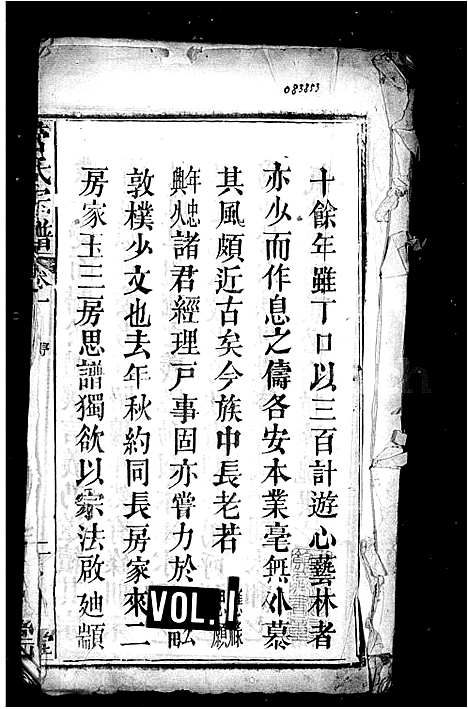 083853
十餘年雖丁口以三百計遊心藝林者
亦少而作息之儔各安本業毫無外慕
其風頗近古矣今族中長老若
年忠
與久
諸君經理戸事固亦嘗力於
敦樸少文也去年秋約同長房家來二
房家玉三房思譜獨欲以宗法啟廸顓
氏宗譜
卷一
序
VOL. 1